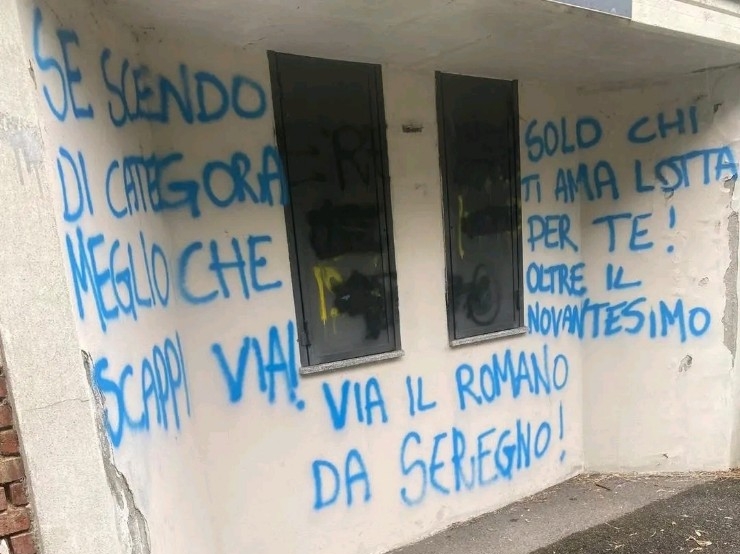 SE SCENDO
DI CATEGORA
MEGLIO CHE
SCAPPI VIA!
VIA IL ROMANO
DA SEREGNO!
SOLO CHI
TI AMA LOTTA
PER TE!
OLTRE IL
NOVANTESIMO